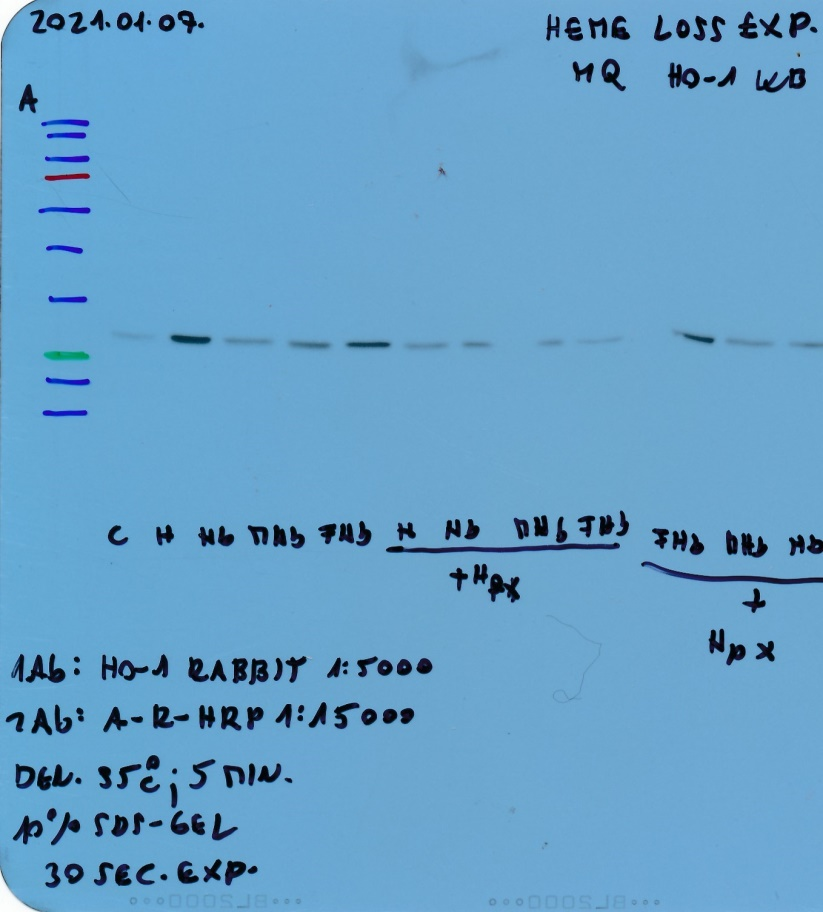 2021.01.07.
HEME LOSS EXP.
MQ HO-1 WB
A
C H Hb MHb FHb H Hb MHb FHb FHb MHb Hb
+Hpx
+
Hpx
1Ab: HO-1 RABBIT 1:5000
2Ab: A-R-HRP 1:15000
DEN. 95°C; 5 MIN.
10% SDS-GEL
30 SEC. EXP.